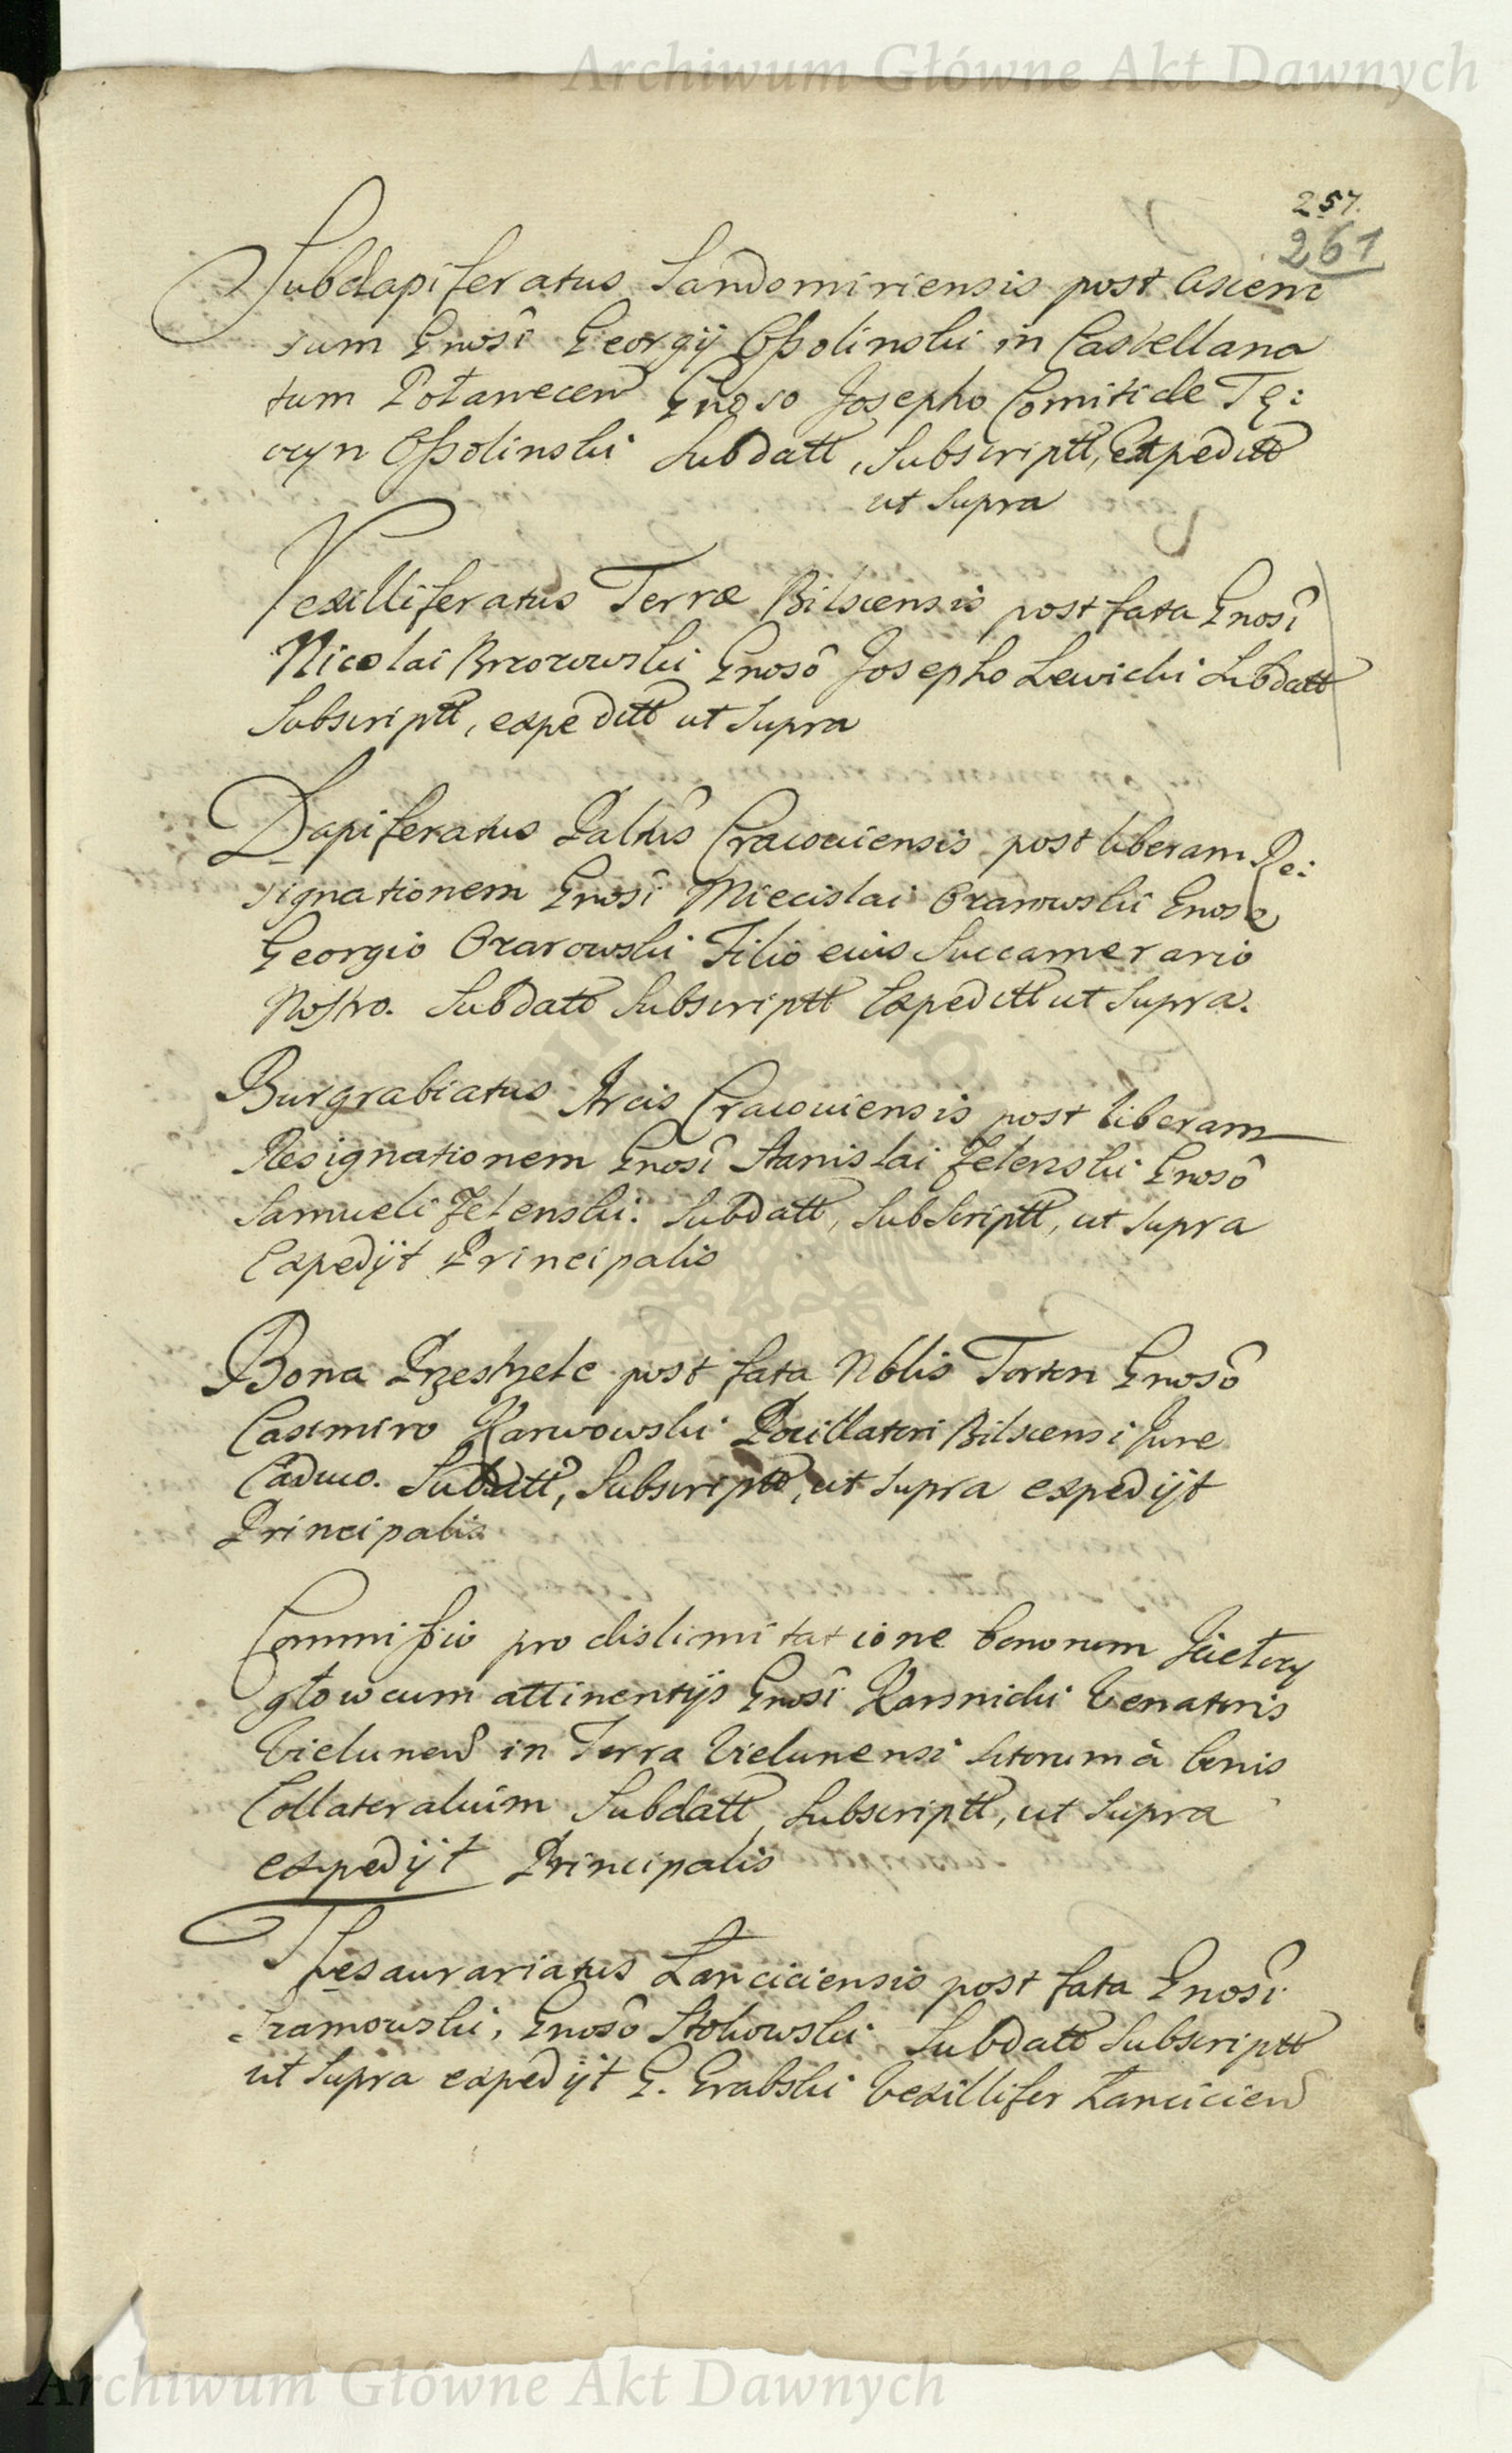 Archiwum Główne Akt Dawnych
257.
261
Subdapiferatus Sandomiriensis post Ascen
sum Gnosi Georgij Ossolinski in Castellana
tum Połanecen Gnoso Josepho Comiti de Tę:
czyn Ossolinski Subdatt, Subscriptt, Expeditt
ut Supra
Vexilliferatus Terræ Bilscensis post fata Gnosî
Nicolai Brzozowski Gnosô Josepho Lewicki Subdatt
Subscriptt, expeditt ut Supra
Dapiferatus Palttûs Cracoviensis post liberam Re:
signationem Gnosî Miecislai Ozarowski Gnoso
Georgio Ozarowski Filio eius Succamerario
Nostro. Subdatt Subscriptt Expeditt ut Supra.
Burgrabiatus Arcis Cracoviensis post liberam
Resignationem Gnosî Stanislai Zelenski Gnosô
Samueli Zelenski. Subdatt, Subscriptt, ut Supra
Expedijt Principalis
Bona post fata Nblis Gnosô
Casimiro Karwowski Pocillatori Bilscensi Jure
Caduco. Subdatt, Subscriptt, ut Supra expedijt
Principalis
Commissio pro dislimitatione bonorum
cum attinentijs Gnosî Karsnicki Venatoris
Vielunen in Terra Vielunensi sitorum à bonis
Collateralium Subdatt, Subscriptt, ut Supra
expedijt Principalis
Thesaurariatus Lanciciensis post fata Gnosî
Sramowski, Gnosô Stokowski Subdatt Subscriptt
ut Supra expedijt G. Grabski Vexillifer Lancicien
Archiwum Główne Akt Dawnych